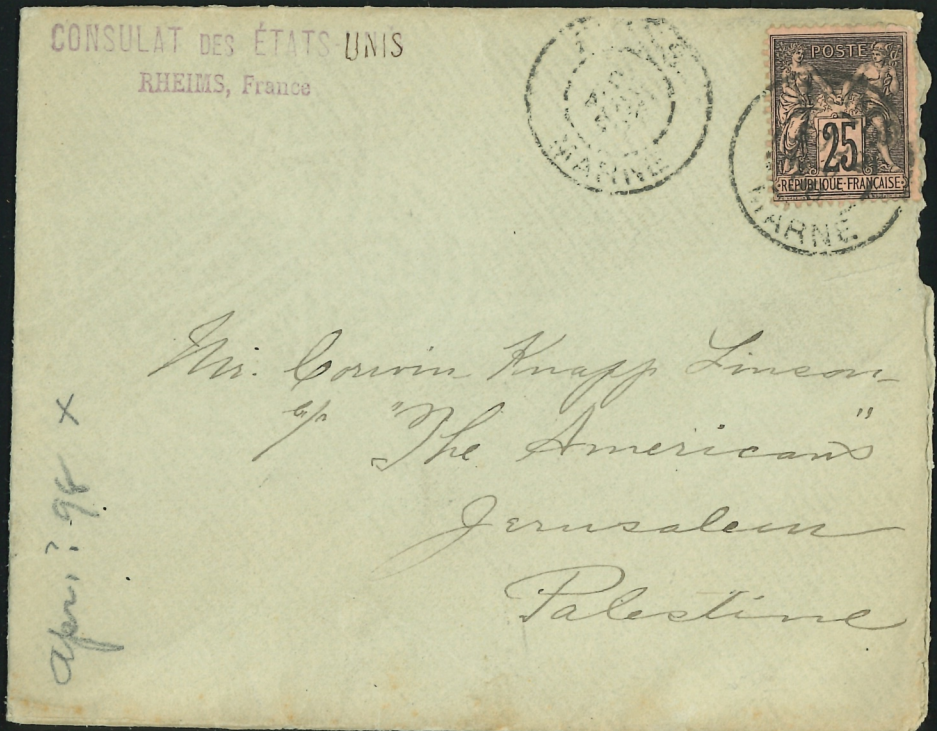 CONSULAT DES ÉTATS UNIS
RHEIMS, France
MARNE
POSTE
25
RÉPUBLIQUE FRANÇAISE
MARNE
Mr. Corwin Knapp Linson
c/o "The Americans"
Jerusalem
Palestine
Apr. ? 98 X